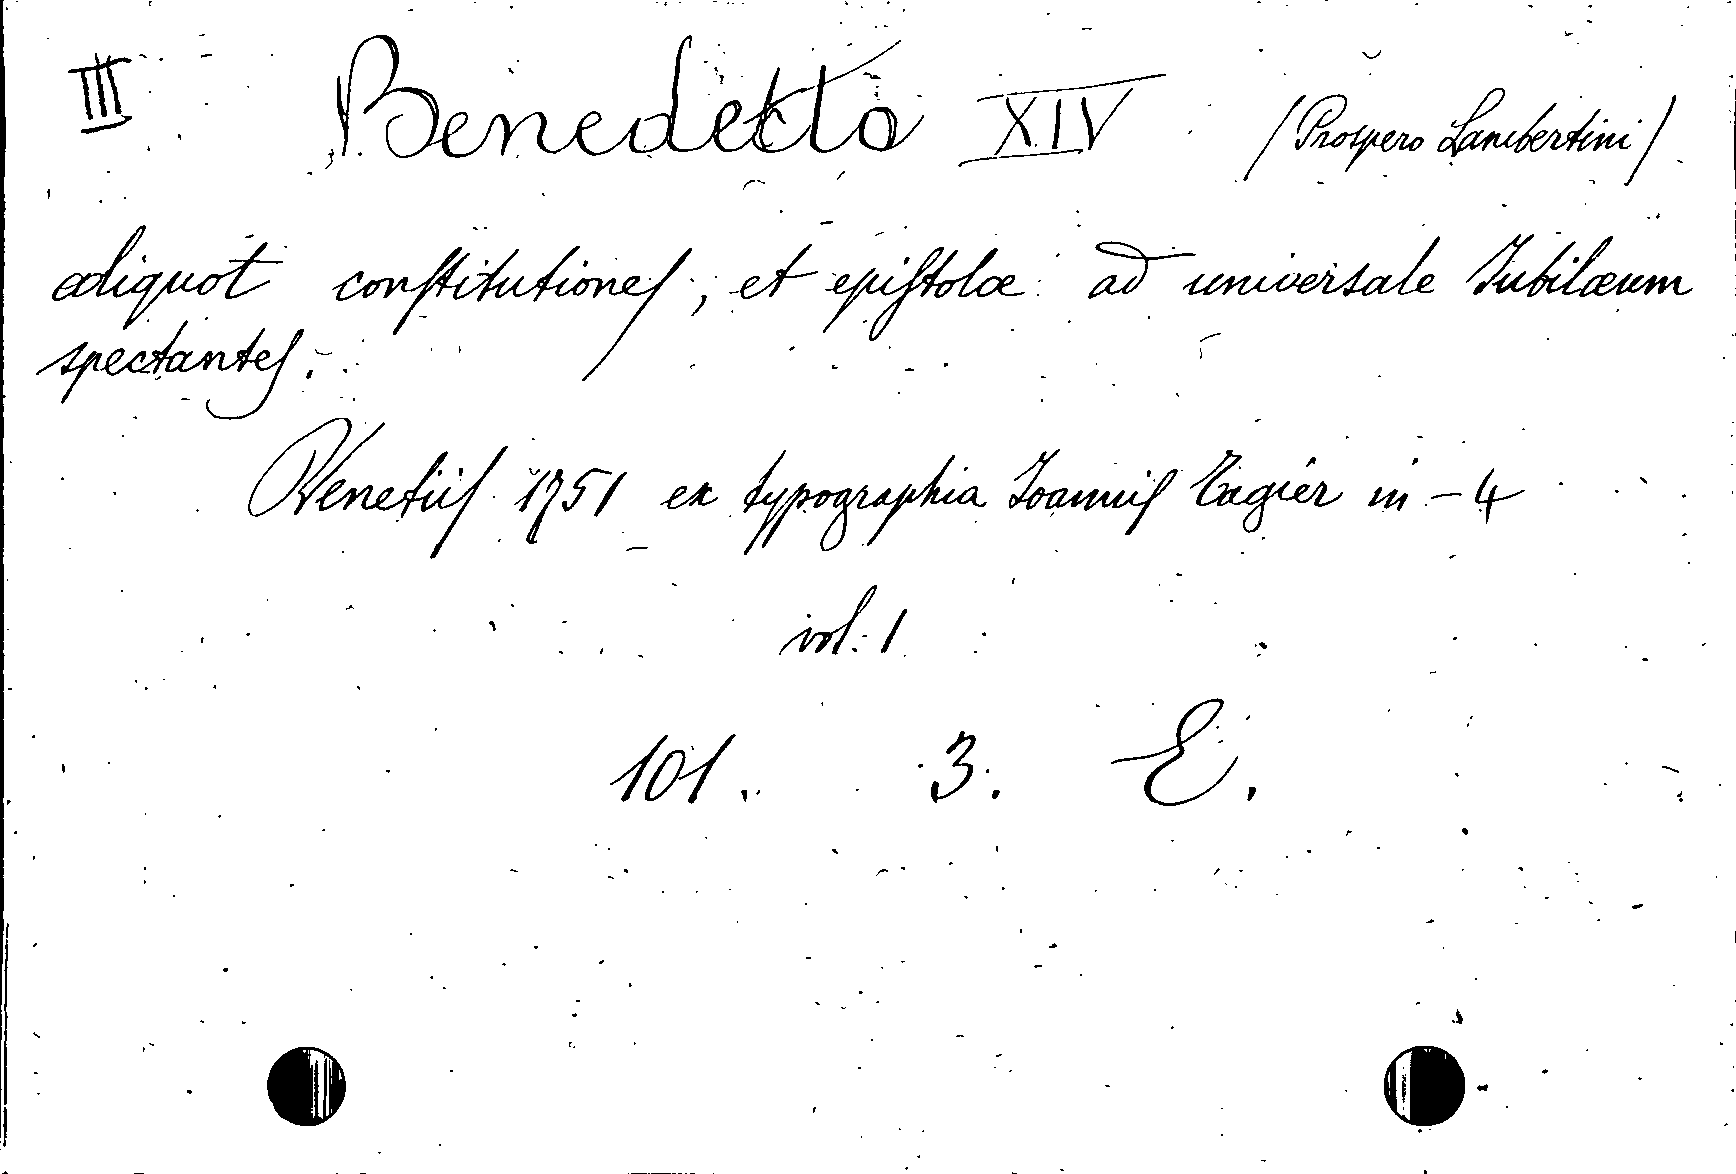 III Benedetto XIV (Prospero Lambertini)
aliquot conſtitutiones, et epiſtolæ ad universale Jubilæum
spectantes.
Venetiis 1751 ex typographia Joannis Tagier in - 4
vol. 1
101. 3. E.